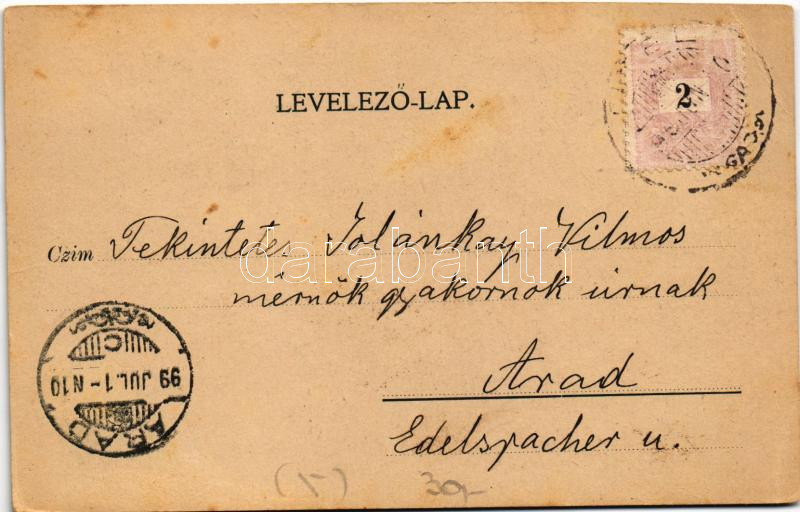 LEVELEZŐ-LAP.
2
Czim Tekintetes Jolánkay Vilmos
mérnök gyakornok úrnak
Arad
Edelspacher u.
99 JUL. 1 - N10
C
ARAD
(5) 30,-
darabanth